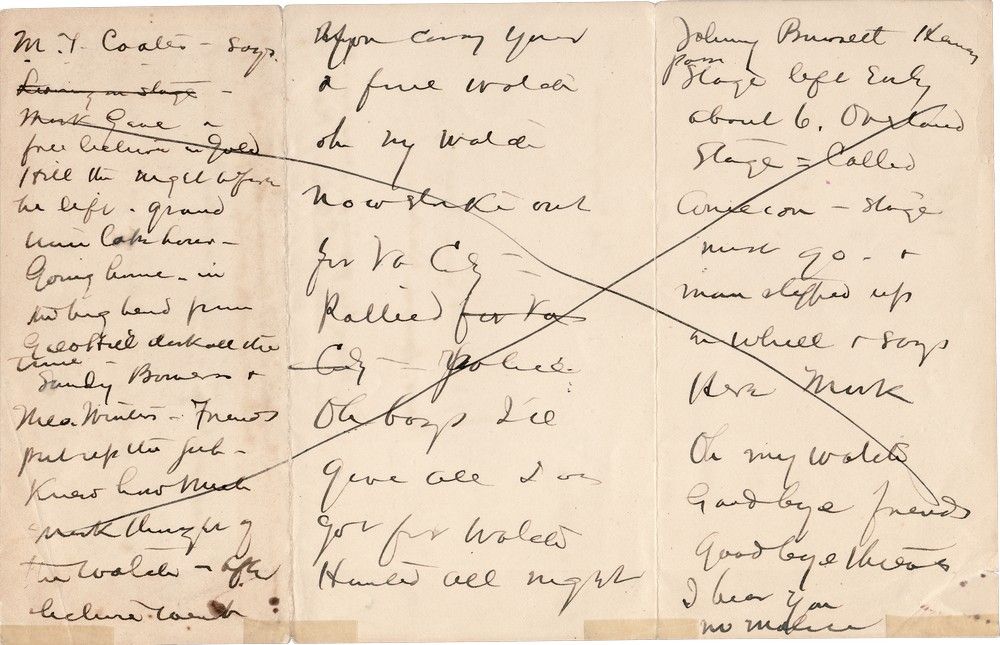 M. T. Coates - says.
Living on stage -
Mark Gave a
free lecture in Gold
Hill the night before
he left - grand
time late hours -
Going home - in
the big bend from
Gold Hill dark all the
time
Sandy Bowers &
Theo. Winters - Friends
put up the job -
Knew how much
Mark thought of
the watch - after
lecture went
carry your
a fine watch
oh my watch
Now strike out
for Va City -
Rallied for Va
City - Police
Oh boys I'll
give all I
got for watch
Hunted all night
Johnny Burnett
Stage left Early
about 6. Overland
Stage = Called
Come on - stage
must go - &
man stepped up
on wheel & says
Here Mark
Oh my watch
Goodbye friends
Goodbye thieves
I bear you
no malice